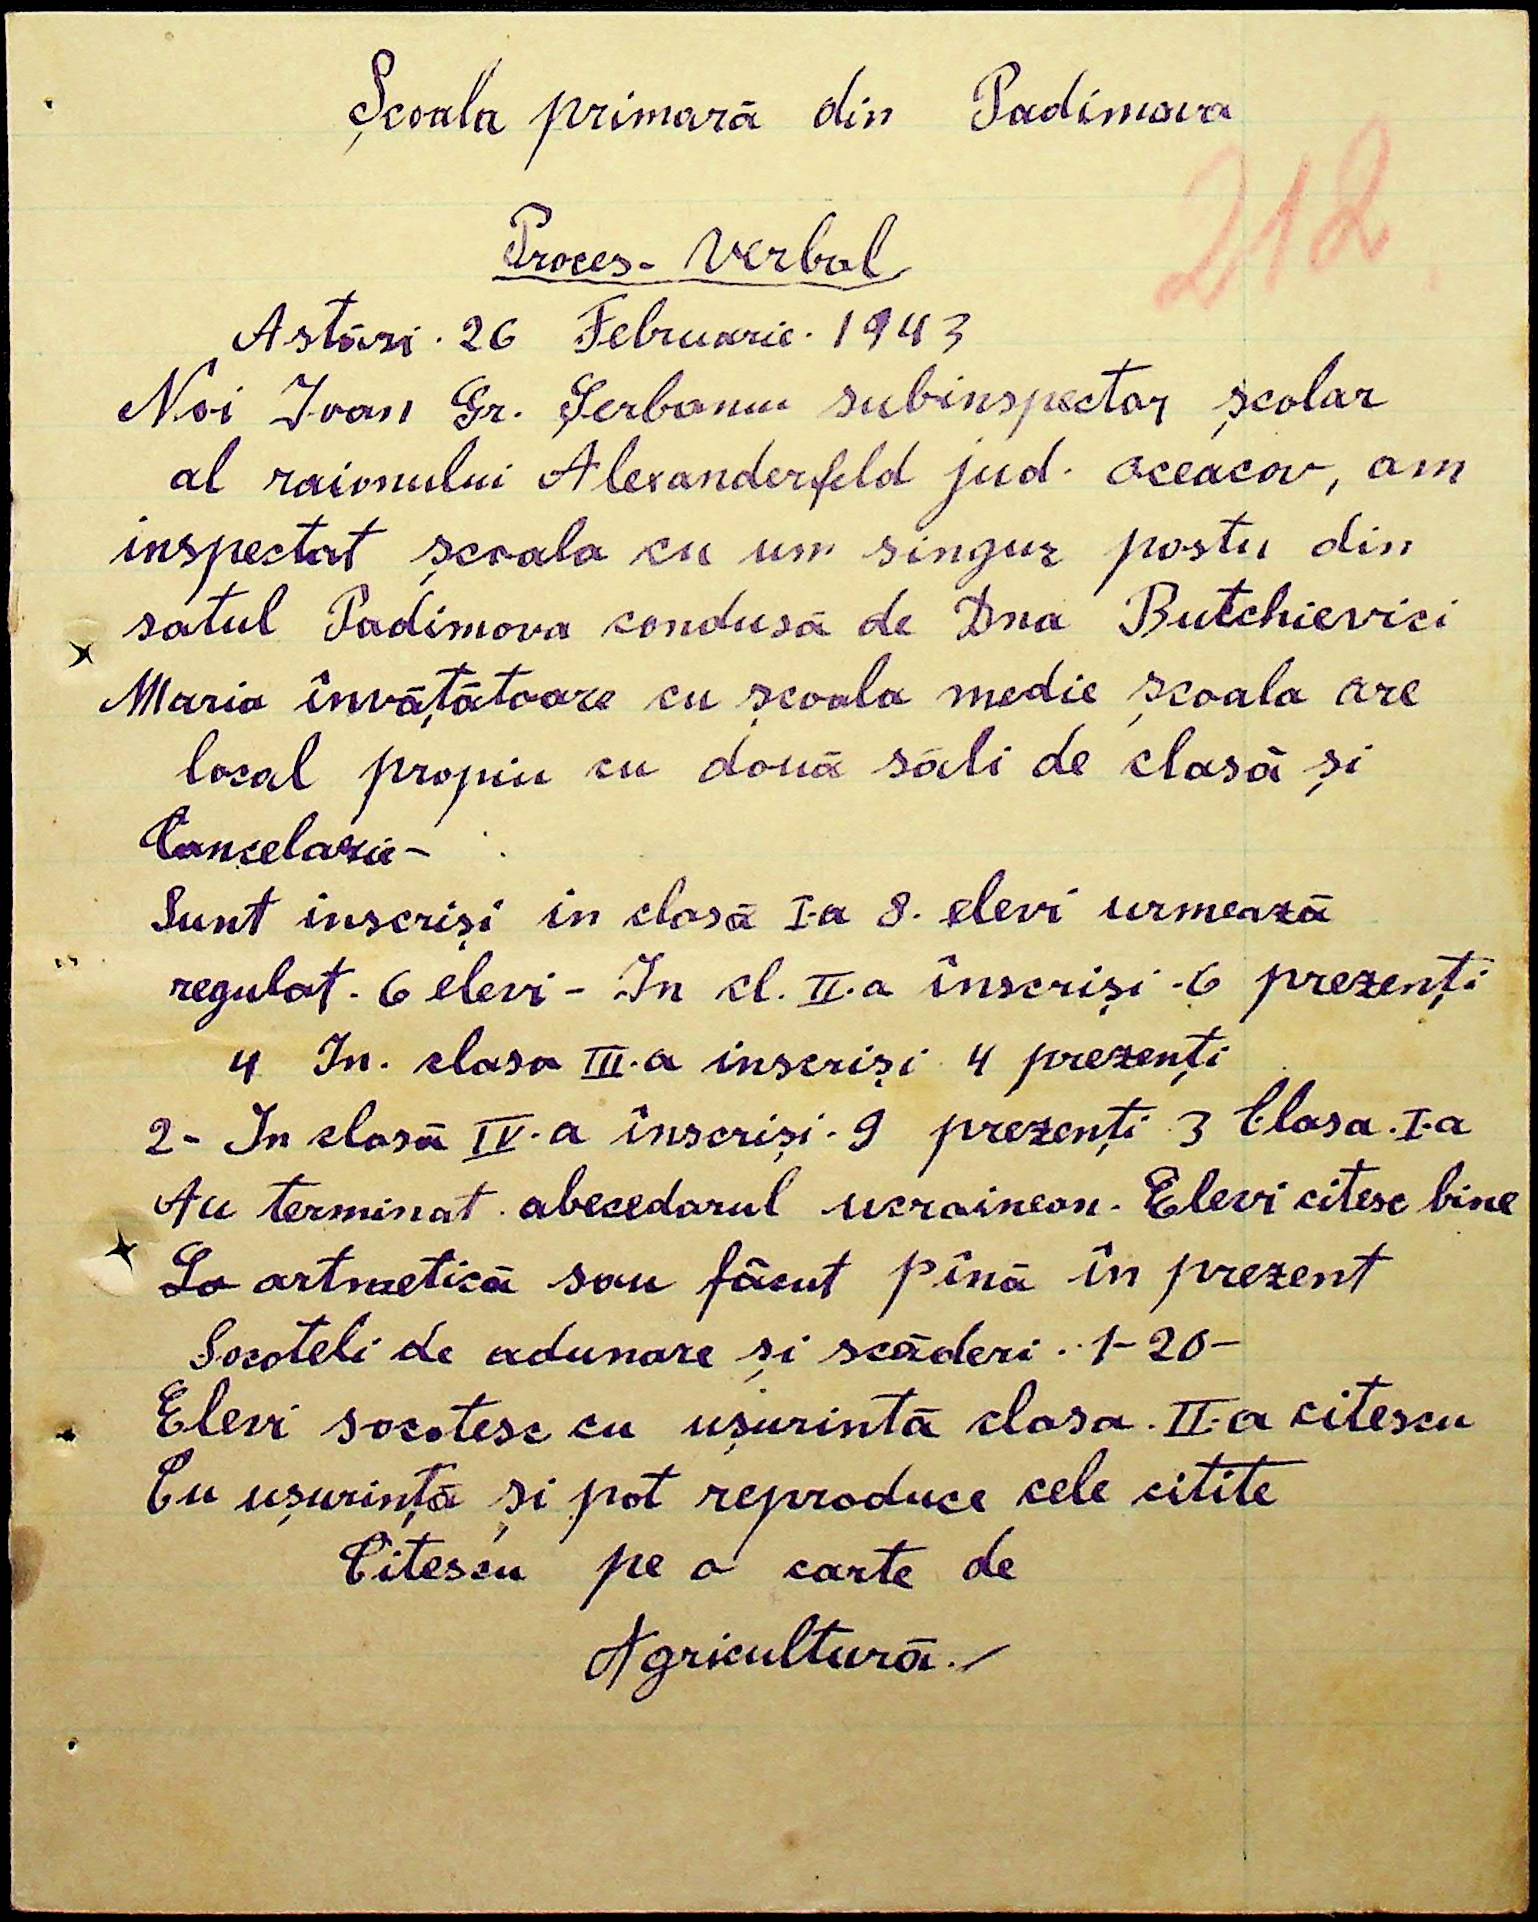 Școala primară din Padimova
212
Proces-Verbal
Astări. 26 Februarie. 1943
Noi Ivan Gr. Șerbanu subinspector școlar
al raionului Alexanderfeld jud. Oceacov, am
inspectat școala cu um singur postu din
satul Padimova condusă de Dna Butchievici
Maria învățătoare cu școala medie școala are
local propiu cu două săli de clasă și
Cancelarie-
Sunt inscriși in clasă I-a 8. elevi urmează
regulat. 6 elevi - In cl. II.a înscriși . 6 prezenți
4 In. clasa III.a inscriși 4 prezenți
2- In clasă IV.a înscriși. 9 prezenți 3 Clasa. I-a
Au terminat abecedarul ucrainean. Elevi citesc bine
La artmetică sau făcut pînă în prezent
Socoteli de adunare și scăderi.. 1-20-
Elevi socotesc cu ușurintă clasa. II-a citescu
Cu ușurință și pot reproduce cele citite
Citescu pe o carte de
Agricultură.